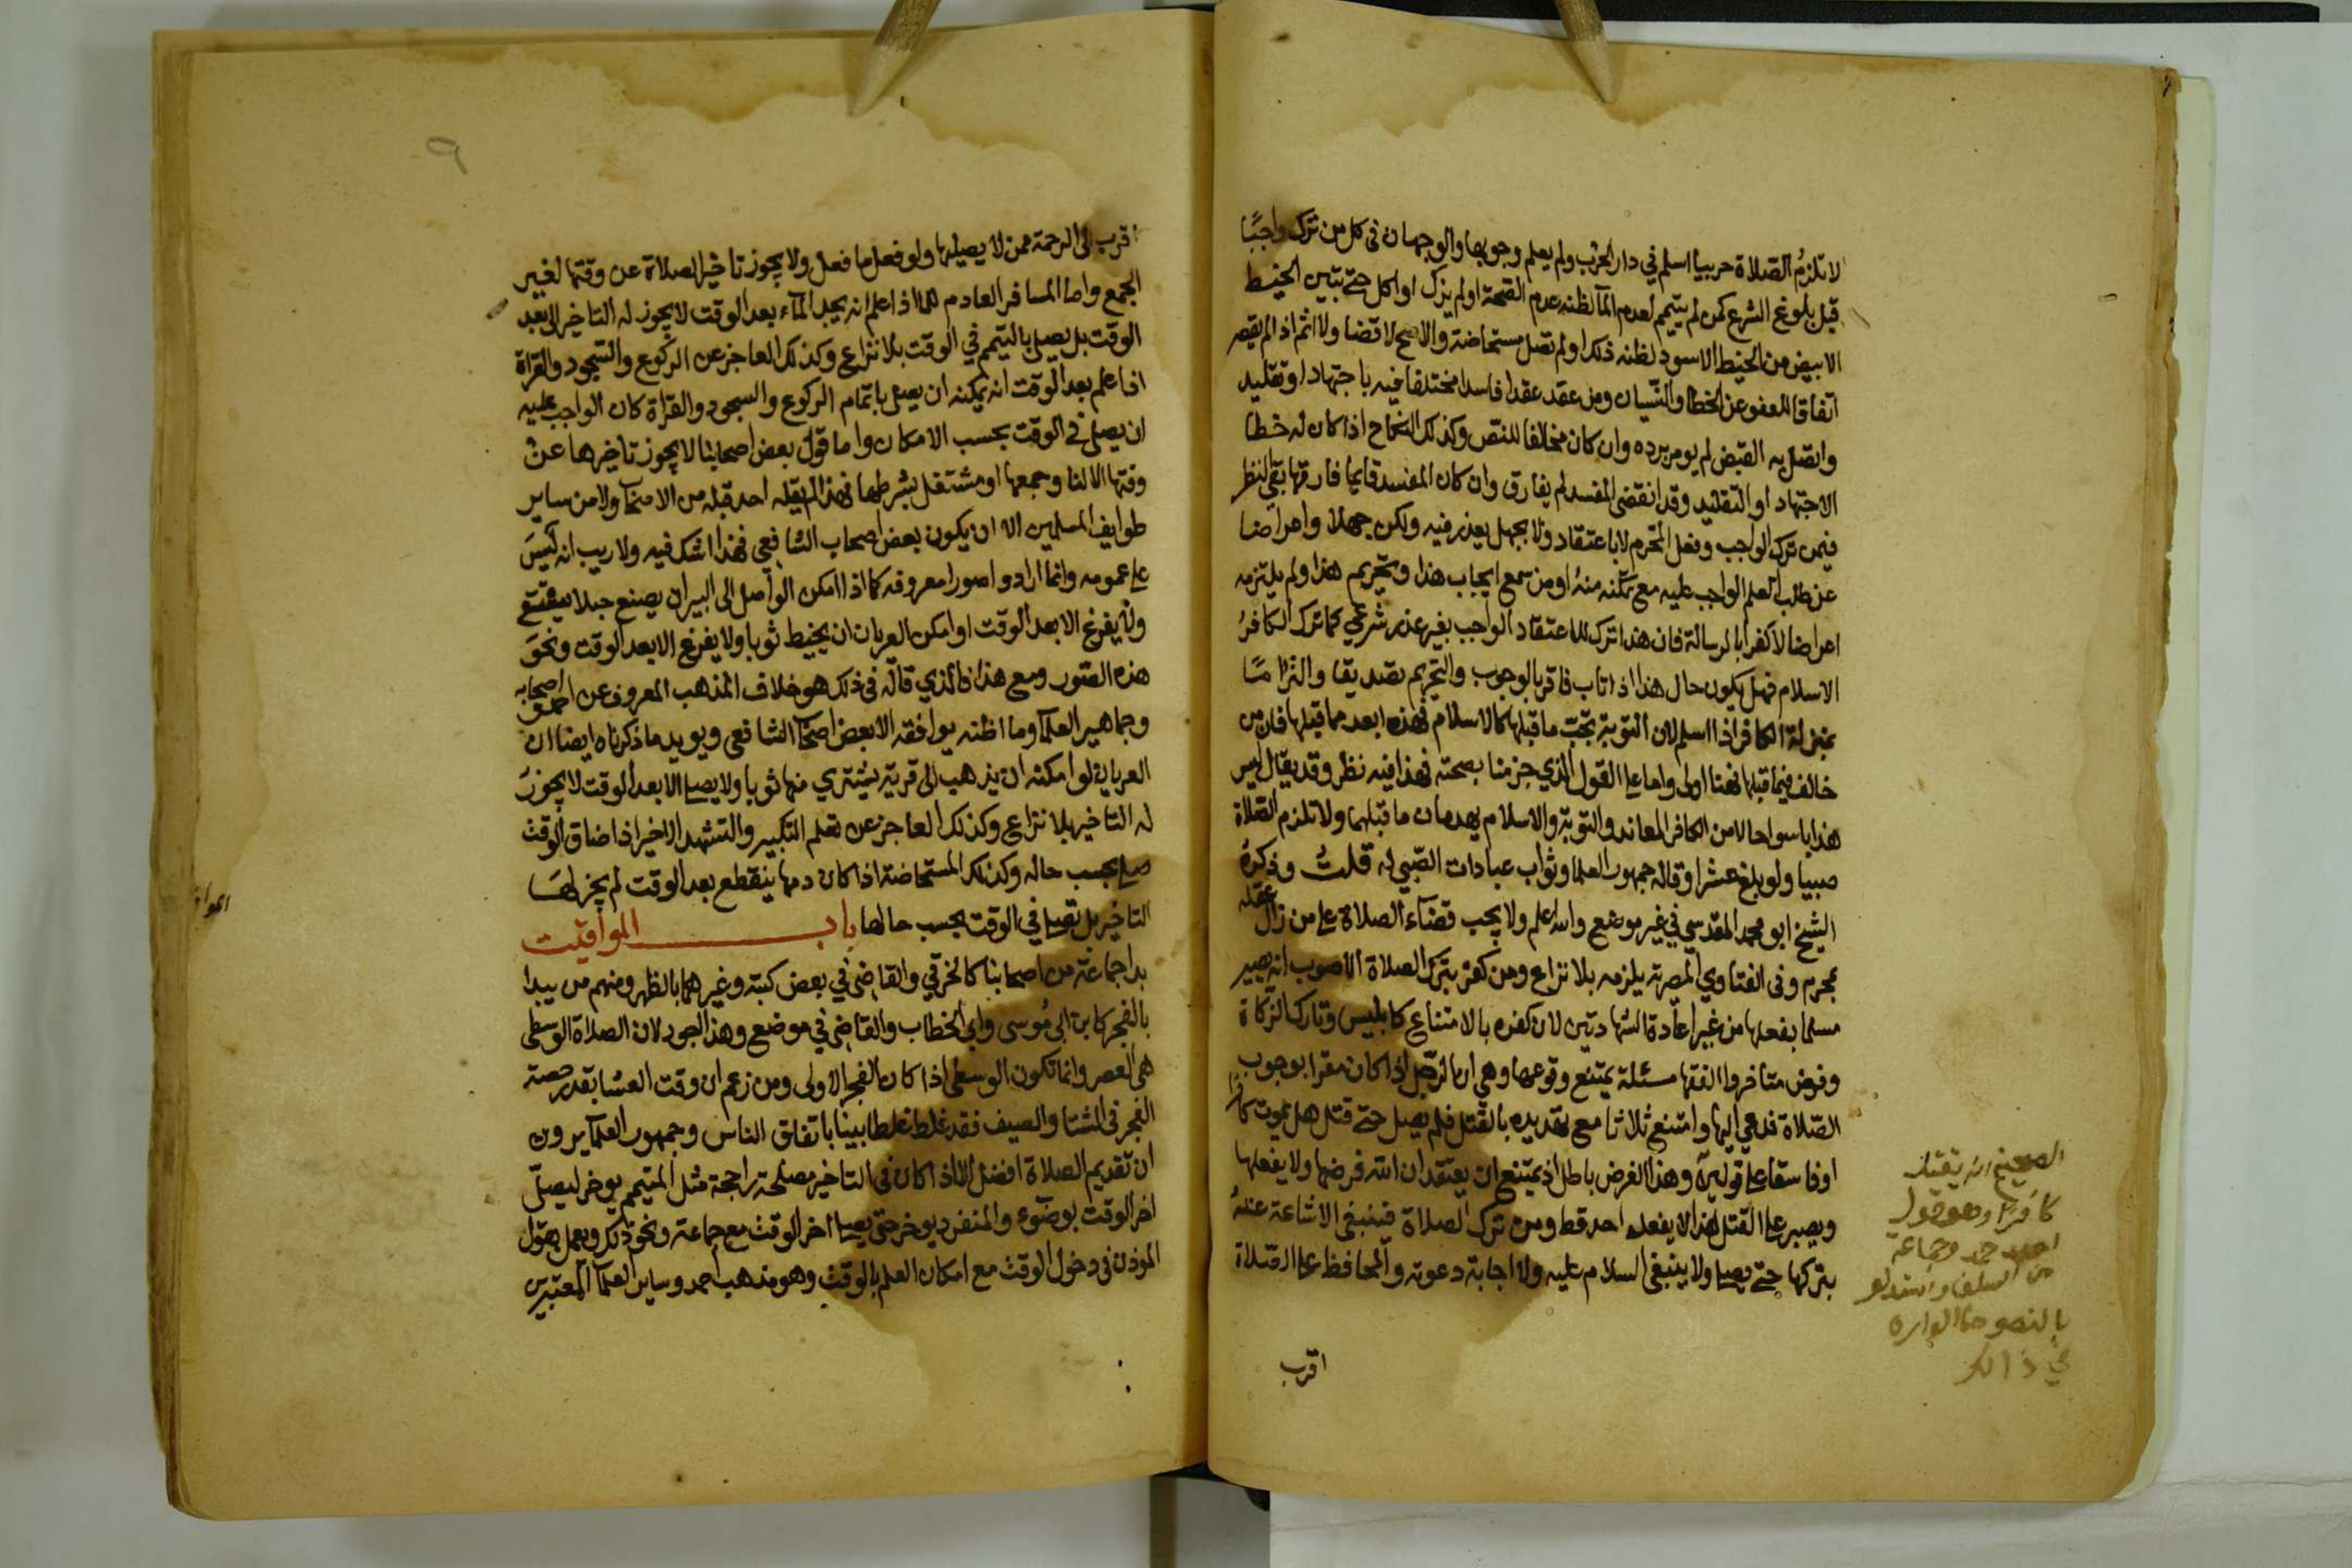 لا تلزم الصلاة حربيا اسلم في دار الحرب ولم يعلم وجوبها والوجهان في كل من ترك واجبًا
قبل بلوغ الشرع كمن لم يتيمم لعدم المآ لظنه عدم الصحة او لم يزك او اكل حتى تبين الخيط
الابيض من الخيط الاسود لظنه ذلك او لم تصل مستحاضة والاصح لا قضا ولا اثم اذ لم يقصر
اتفاقا للعفو عن الخطا والنسيان ومن عقد عقدا فاسدا مختلفا فيه باجتهاد او تقليد
واتصل به القبض لم يومر برده وان كان مخالفا للنص وكذلك النكاح اذا كان له خطا
الاجتهاد او التقليد وقد انقضى المفسد لم يفارق وان كان المفسد قايما فارقها بقي النظر
فيمن ترك الواجب وفعل المحرم لا باعتقاد ولا بجهل يعذر فيه ولكن جهلا واعراضا
عن طلب العلم الواجب عليه مع تمكنه منه او من سمع ايجاب هذا وتحريم هذا ولم يلتزمه
اعراضا لا كفرا بالرسالة فان هذا ترك للاعتقاد الواجب بغير عذر شرعي كما ترك الكافر
الاسلام فهل يكون حال هذا اذا تاب فاقر بالوجوب والتحريم تصديقا والتزامًا
بمنزلة الكافر اذا اسلم لان التوبة تجب ما قبلها كالاسلام فهذه ابعد مما قبلها فان من
خالف فيما قبلها فهنا اولى واما على القول الذي جزمنا بصحته فهذا فيه نظر وقد يقال ليس
هذا باسوا حالا من الكافر المعاند والتوبة والاسلام يهدمان ما قبلهما ولا تلزم الصلاة
صبيا ولو بلغ عشرا وقاله جمهور العلما وثواب عبادات الصبي له قلت وذكره
الشيخ ابو محمد المقدسي في غير موضع والله اعلم ولا يجب قضآء الصلاة على من زال عقله
بمحرم وفى الفتاوي المصرية يلزمه بلا نزاع ومن كفر بترك الصلاة الاصوب انه يصير
مسلما بفعلها من غير اعادة الشهادتين لان كفره بالامتناع كابليس وتارك الزكاة
وفرض متاخروا الفقها مسئلة يمتنع وقوعها وهي ان الرجل اذا كان مقرا بوجوب
الصلاة فدعي اليها وامتنع ثلاثا مع تهديده بالقتل فلم يصل حتى قتل هل يموت كافرا
او فاسقا على قولين وهذا الفرض باطل اذ يمتنع ان يعتقد ان الله فرضها ولا يفعلها
ويصبر على القتل هذا لا يفعله احد قط ومن ترك الصلاة فينبغي الاشاعة عنه
بتركها حتى يصلي ولا ينبغي السلام عليه ولا اجابة دعوته والمحافظ على الصلاة
اقرب
الصحيح انه يقتل
كافرًا وهو قول
احمد وجماعة
من السلف واستدلو
بالنصوص الوارده
في ذالك
٩
اقرب الى الرحمة ممن لا يصليها ولو فعل ما فعل ولا يجوز تاخير الصلاة عن وقتها لغير
الجمع واما المسافر العادم للما اذا علم انه يجد المآء بعد الوقت لا يجوز له التاخير الى بعد
الوقت بل يصلي بالتيمم في الوقت بلا نزاع وكذلك العاجز عن الركوع والسجود والقراة
اذا علم بعد الوقت انه يمكنه ان يصلي باتمام الركوع والسجود والقراة كان الواجب عليه
ان يصلي في الوقت بحسب الامكان واما قول بعض اصحابنا لا يجوز تاخيرها عن
وقتها الا لناو جمعها او مشتغل بشرطها فهذا لم يقله احد قبله من الاصحاب ولا من ساير
طوايف المسلمين الا ان يكون بعض اصحاب الشافعي فهذا اشك فيه ولا ريب انه ليس
على عمومه وانما ارادو اصورا معروفه كما اذا امكن الواصل الى البير ان يصنع حبلا يستقي
ولا يفرغ الا بعد الوقت او امكن العريان ان يخيط ثوبا ولا يفرغ الا بعد الوقت ونحو
هذه الصور ومع هذا فالذي قاله في ذلك هو خلاف المذهب المعروف عن احمد واصحابه
وجماهير العلمآ وما اظنه يوافقه الا بعض اصحاب الشافعي ويويد ما ذكرناه ايضا ان
العريان لو امكنه ان يذهب الى قرية يشتري منها ثوبا ولا يصلي الا بعد الوقت لا يجوز
له التاخير بلا نزاع وكذلك العاجز عن تعلم التكبير والتشهد الاخير اذا ضاق الوقت
صلى بحسب حاله وكذلك المستحاضة اذا كان دمها ينقطع بعد الوقت لم يجز لها
التاخير بل تصلي في الوقت بحسب حالها باب المواقيت
بدا جماعة من اصحابنا كالخرقي والقاضي في بعض كتبه وغيرهما بالظهر ومنهم من يبدا
بالفجر كابن ابي موسى وابي الخطاب والقاضي في موضع وهذا اجود لان الصلاة الوسطى
هي العصر وانما تكون الوسطى اذا كان الفجر الاولى ومن زعم ان وقت العشا بقدر حصة
الفجر في الشتا والصيف فقد غلط غلطا بينا باتفاق الناس وجمهور العلمآ يرون
ان تقديم الصلاة افضل الا اذا كان في التاخير مصلحة راجحة مثل المتيمم يوخر ليصلي
اخر الوقت بوضوء والمنفرد يوخر حتى يصلي اخر الوقت مع جماعة ونحو ذلك ويعمل بقول
الموذن في دخول الوقت مع امكان العلم بالوقت وهو مذهب احمد وساير العلمآ المعتبرين